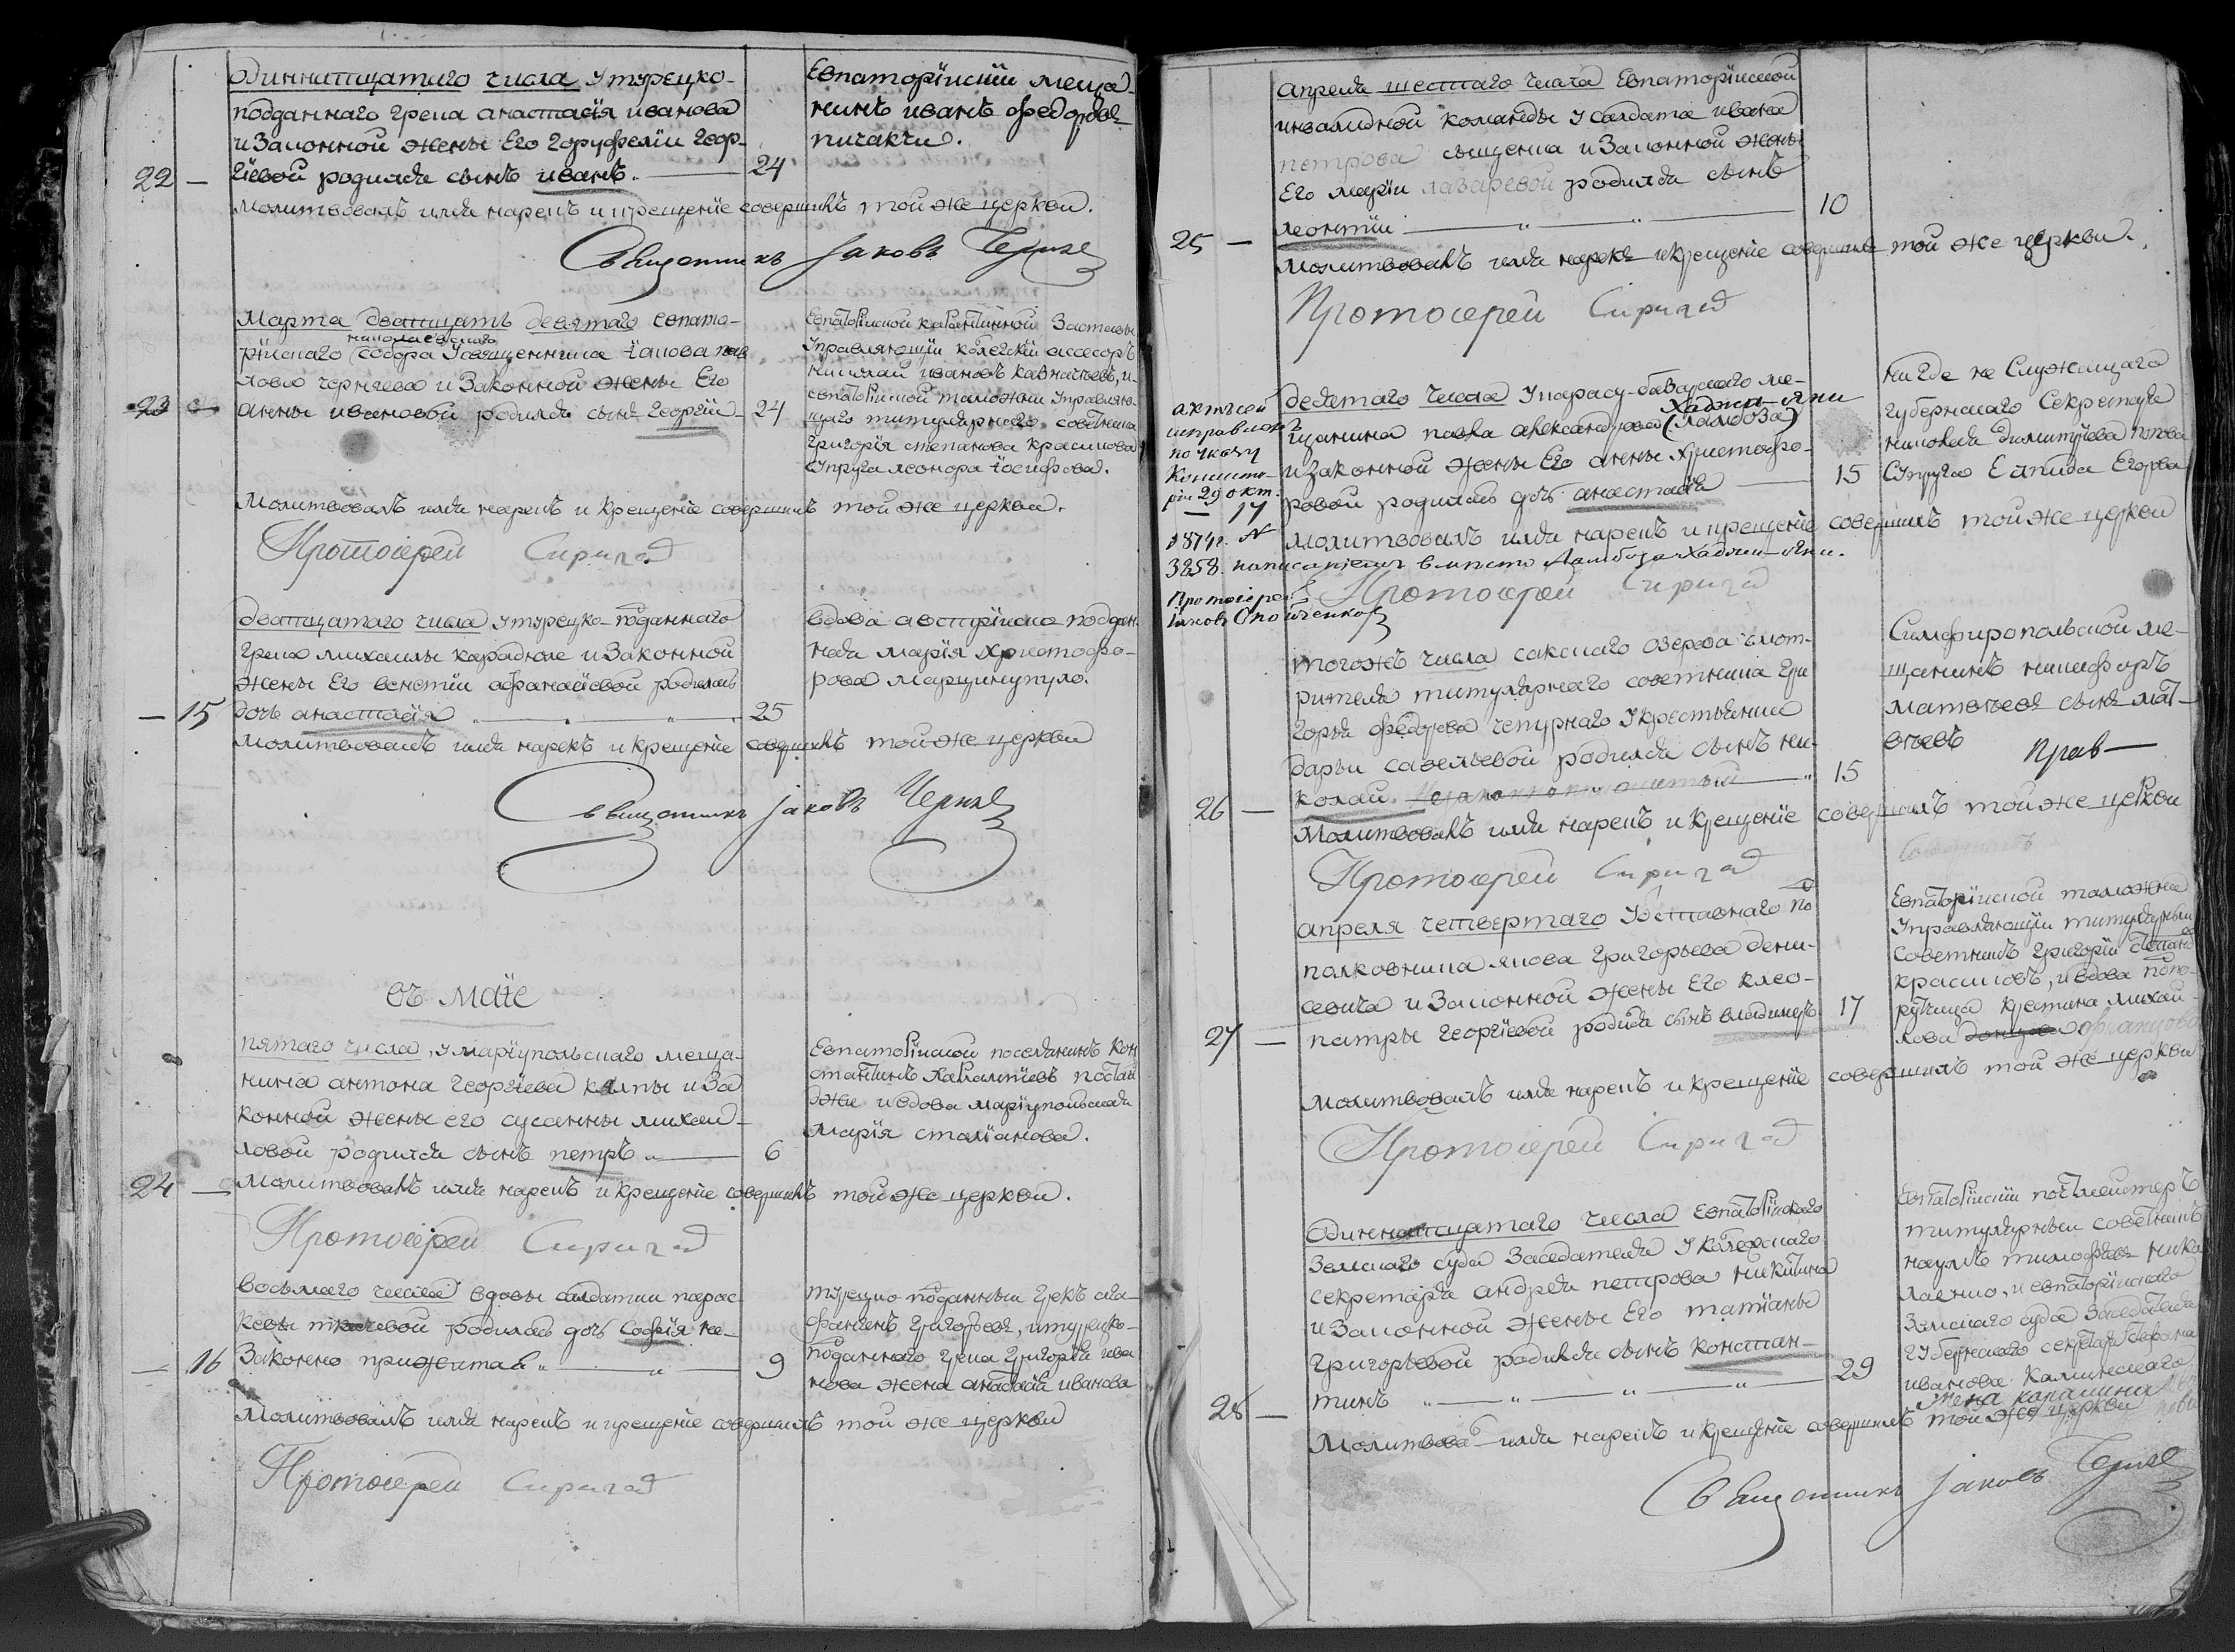 одиннатцатаго числа утурецко-
подданнаго грека анастасiя иванова
и Законной жены Его Геор-
гiевой родился сынъ иванъ. 24
22 —
Евпаторiйскiй меща-
нинъ иванъ федоровъ
пичакчи.
молитвовалъ имя нарекъ и крещенiе совершилъ той же церкви.
Священникъ Iаковъ
Марта дватцать девятаго Евпато-
николаевскаго
рiйскаго собора Усвященника iакова пав
лова черняева и Законной жены Его
23 — анны ивановой родился сынъ георгiй 24
Евпаторiйской карантинной Заставы
Управляющiй колежскiй ассесоръ
николай ивановъ и
Евпаторiйской таможни Управляю-
щаго титулярнаго советника
григорiя степанова красикова
супруга леонора iосифова.
Молитвовалъ имя нарекъ и крещенiе совершилъ той же церкви.
Протоiерей Спиридъ
дватцатаго числа утурецко-подданнаго
Грека михаилы и Законной
жены Его афанасiевой родилась
— 15 дочь анастасiя 25
вдова австрiйско поддан
ная марiя христофо-
рова
молитвовалъ имя нарекъ и крещенiе совершилъ той же церкви
Священникъ Iаковъ
въ маiе
пятаго числа, Умарiупольскаго меща-
нина антона георгiева и За
конной жены его сусанны михай-
ловой родился сынъ петръ 6
24 —
Евпаторiйской поселянинъ кон
стантинъ
и вдова марiупольская
марiя
Молитвовалъ имя нарекъ и крещенiе совершилъ той же церкви.
Протоiерей Спиридъ
восьмаго числа вдовы солдатки парас-
кевы родилась дочь Софiя не-
— 16 Законно прижитая 9
турецко подданный грекъ ага-
григорьевъ, и турецко-
подданнаго грека григорiя ива
нова жена анастасiя иванова
Молитвовалъ имя нарекъ и крещенiе совершилъ той же церкви
Протоiерей Спиридъ
апреля шестаго числа Евпаторiйской
инвалидной команды Усолдата ивана
петрова и Законной жены
Его марiи лазаревой родился сынъ
25 — леонтiй 10
Молитвовалъ имя нарекъ и крещенiе совершилъ той же церкви.
Протоiерей Спиридъ
десятаго числа Укарасу-базарскаго ме-
Хаджи-Яни
щанина павла александрова (Ламбоза)
и законной жены Его анны христофо-
ровой родилась дочь анастасiя 15
нигде не Служащаго
губернскаго Секретаря
николая димитрiева попова
Супруга Елпида Егорова
актъ сей
исправленъ
по указу
Консисто-
рiи 29 окт.
— 17
1874г. №
3258. написанiемъ вместо Ламбоза Хаджи-Яни.
Протоiерей
Iаковъ
молитвовалъ имя нарекъ и крещенiе совершилъ той же церкви
Протоiерей Спиридъ
тогожъ числа сакскаго озера смот-
рителя титулярнаго советника гри
горiя федорова чепурнаго Укрестьянки
дарьи савельевой родился сынъ ни-
26 — колай. 15
Симферопольской ме-
щанинъ никифоръ
матвеевъ сынъ мат-
веевъ
Молитвовалъ имя нарекъ и крещенiе совершилъ той же церкви
Протоiерей Спиридъ
апреля четвертаго Уотставнаго под
полковника якова григорьева дени-
севича и Законной жены Его клео-
27 — патры георгiевой родился сынъ владимиръ 17
Евпаторiйской таможни
Управляющiй титулярный
советникъ григорiй степановъ
красиковъ, и вдова подпо-
ручица михай-
лова
молитвовалъ имя нарекъ и крещенiе совершилъ той же церкви
Протоiерей Спиридъ
Одиннатцатаго числа Евпаторiйскаго
Земскаго суда Заседателя Уколежскаго
секретаря андрея петрова никитина
и Законной жены Его татiаны
григорьевой родился сынъ констан-
28 — тинъ 29
Евпаторiйскiй почтмейстеръ
титулярный советникъ
наумъ тимофеевъ
и евпаторiйскаго
Земскаго суда Заседателя
губернскаго секретаря стефана
иванова калинскаго
жена
Молитвова имя нарекъ и крещенiе совершилъ той же церкви
Священникъ Iаковъ